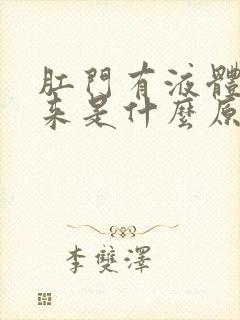 肛門有液體
來是什麼原
李雙澤